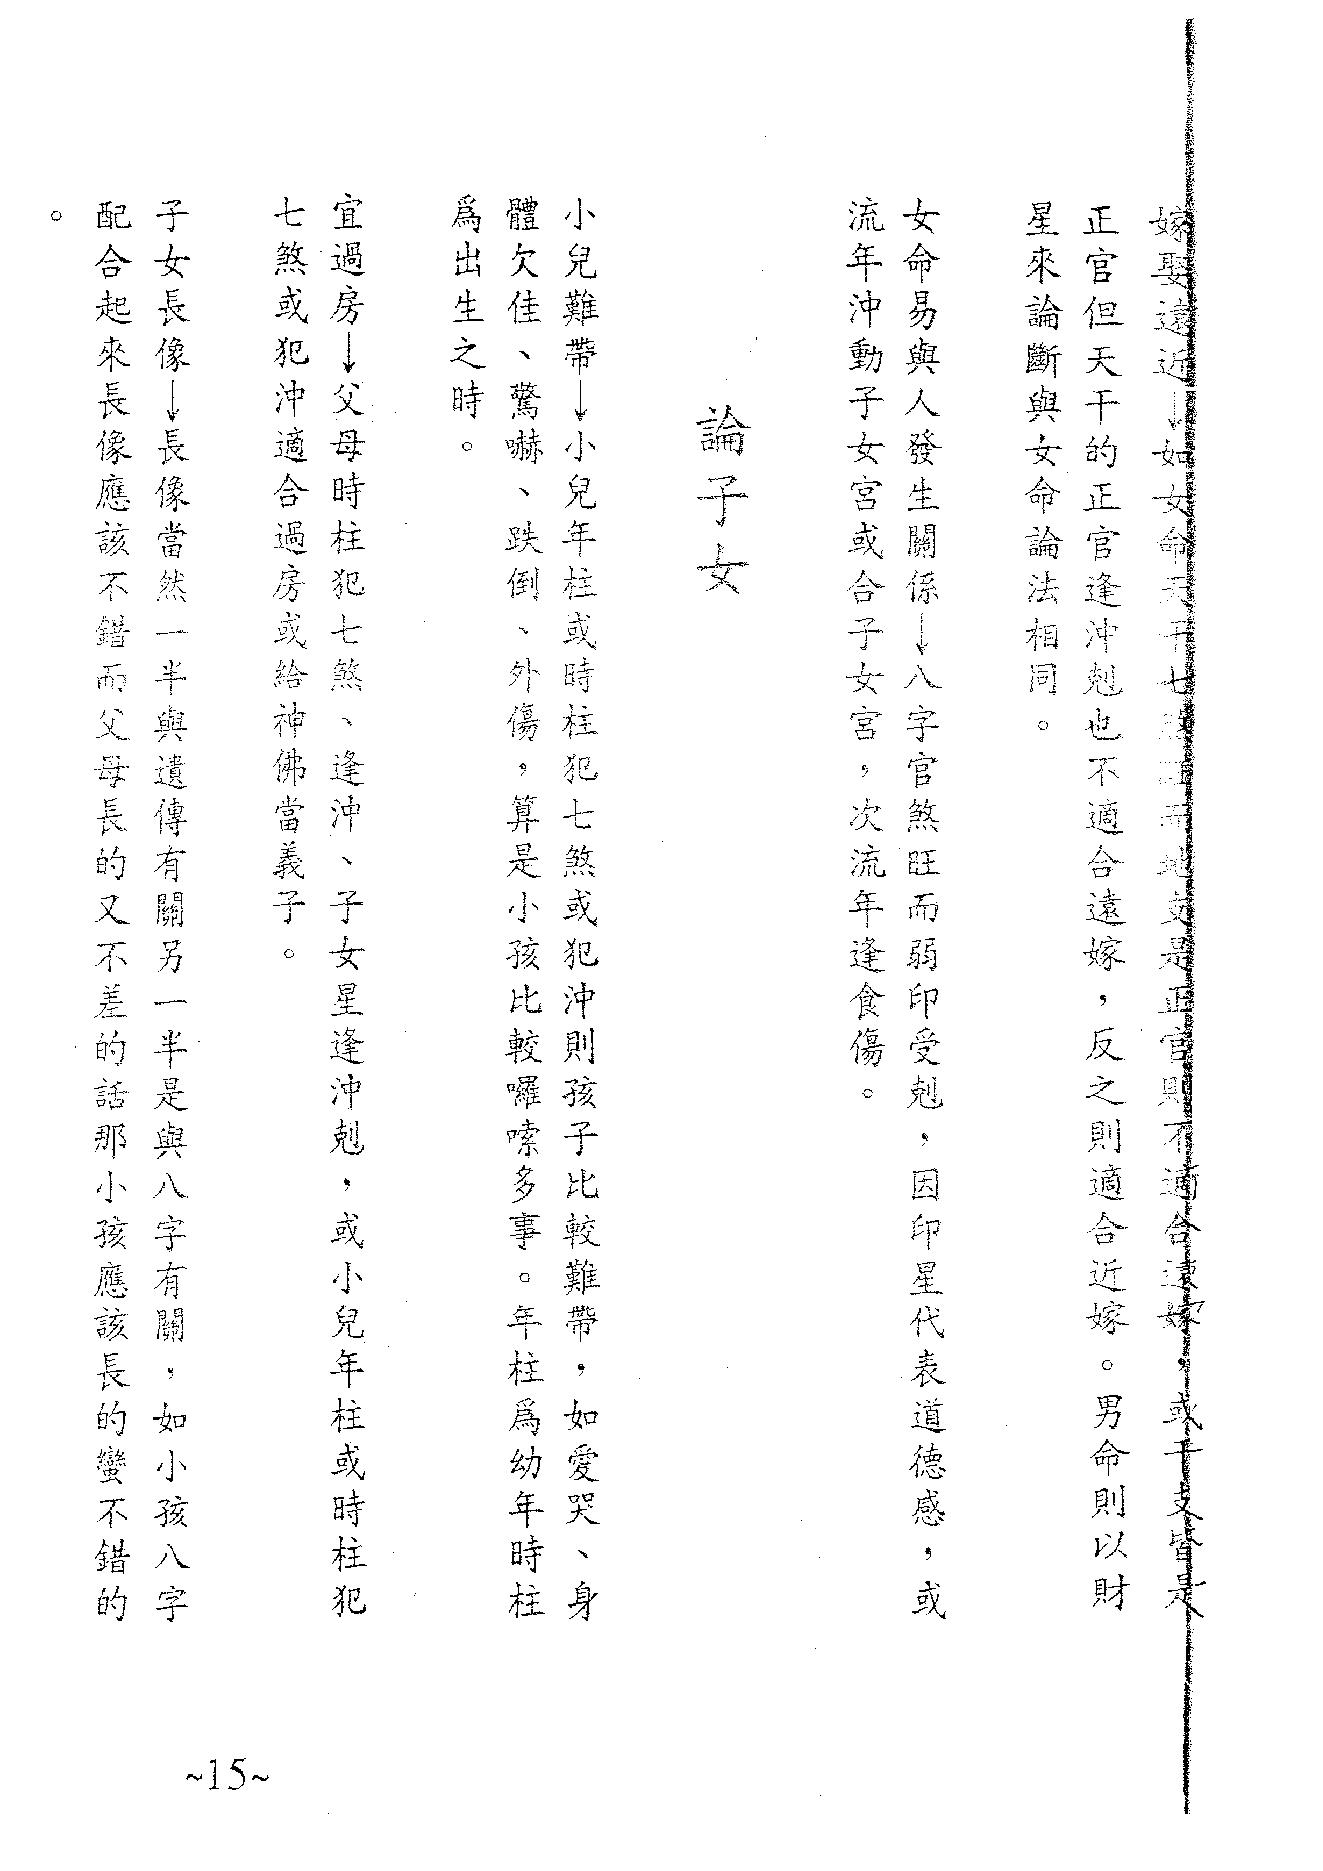 嫁娶遠近→如女命天干七煞旺而地支是正官則不適合遠嫁，或干支皆是
正官但天干的正官逢沖剋也不適合遠嫁，反之則適合近嫁。男命則以財
星來論斷與女命論法相同。
女命易與人發生關係→八字官煞旺而弱印受剋，因印星代表道德感，或
流年沖動子女宮或合子女宮，次流年逢食傷。
論子女
小兒難帶→小兒年柱或時柱犯七煞或犯沖則孩子比較難帶，如愛哭、身
體欠佳、驚嚇、跌倒、外傷，算是小孩比較囉嗦多事。年柱爲幼年時柱
爲出生之時。
宜過房→父母時柱犯七煞、逢沖、子女星逢沖剋，或小兒年柱或時柱犯
七煞或犯沖適合過房或給神佛當義子。
子女長像→長像當然一半與遺傳有關另一半是與八字有關，如小孩八字
配合起來長像應該不錯而父母長的又不差的話那小孩應該長的蠻不錯的
。
~15~